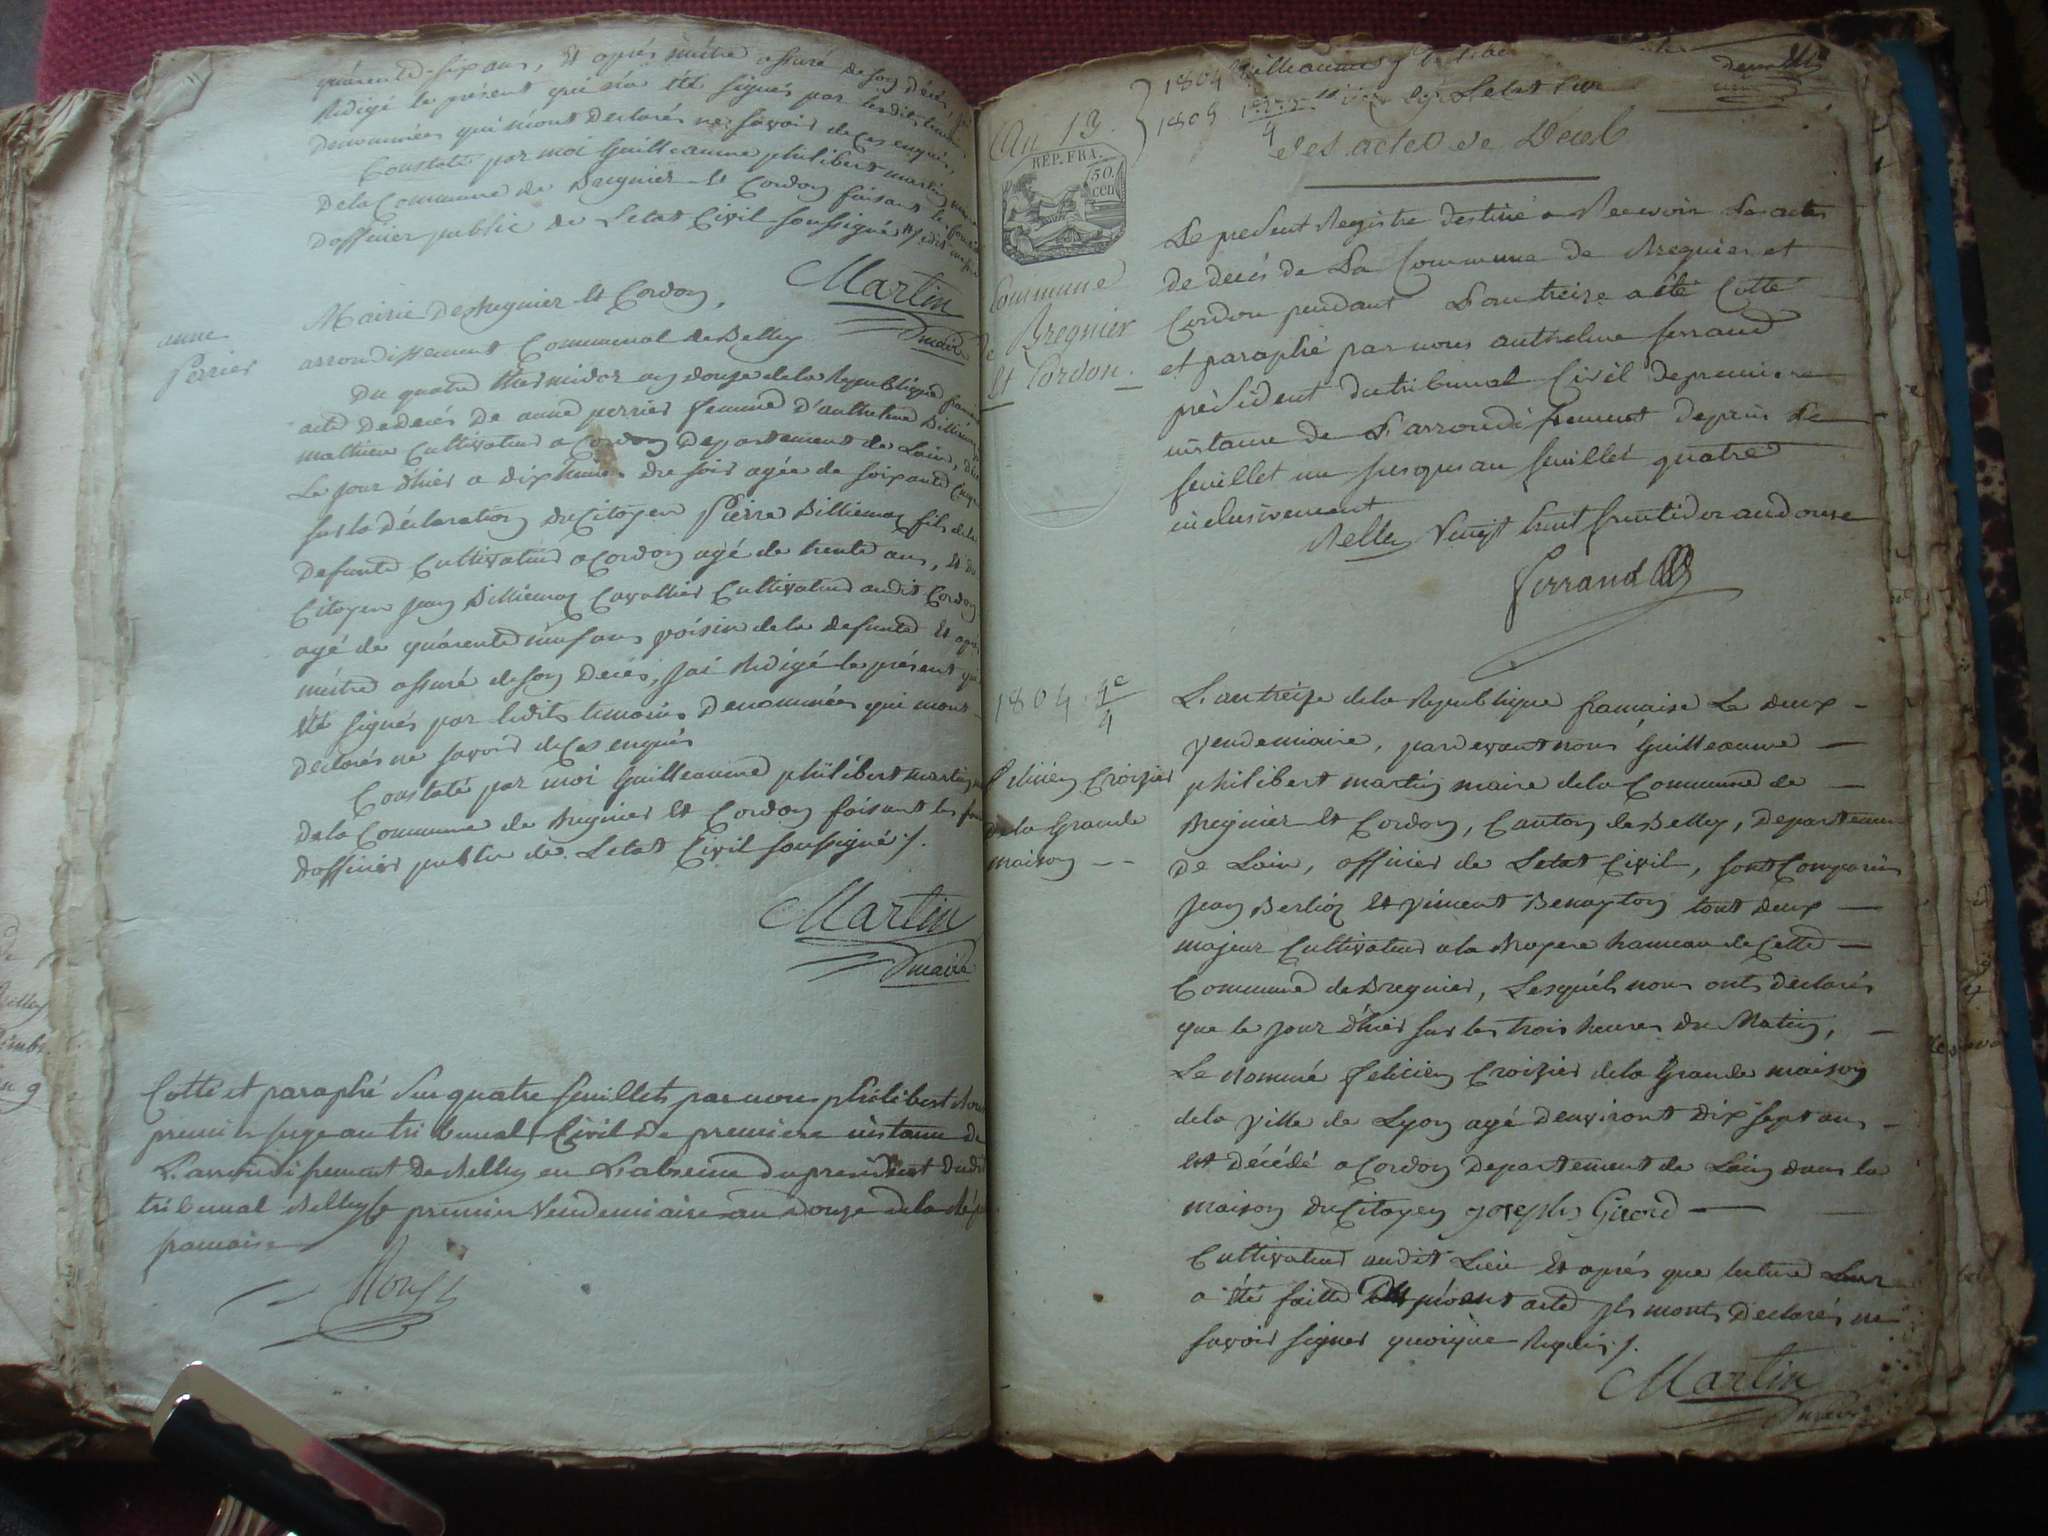 quarente-six ans, et aprés m'etre assuré de son décés, j'ai
Rédigé le présent qui n'a été signés par lesdits
denommées qui m'ont declarés ne savoir de ces enquis,
Constaté par moi Guilleaume philibert martin
De la Commune de Bregnier et Cordon faisant les
d'officier public de L'etat Civil soussigné
Martin
maire
anne
Perrier
Mairie de Bregnier et Cordon,
arrondissement Communal de Belley
Du quatre thermidor an douze de la Republique
acte de decés de anne perrier femme d'anthelme Billiemaz
mathieu Cultivateur a Cordon Departement de Lain,
Le jour d'hier a dix heures du soir agée de soixante
sur la déclaration du Citoyen Pierre Billiemaz fils de la
defunte Cultivateur a Cordon agé de trente ans, et du
Citoyen Jean Billiemaz Cavallier Cultivateur audit Cordon
agé de quarente neuf ans voisin de la defunte et aprés
m'etre assuré de son decés, j'ai Redigé le présent
été signés par lesdits temoins denommées qui m'ont
declarés ne savoir de ces enquis
Constaté par moi Guilleaume philibert martin
de la Commune de Bregnier et Cordon faisant les
d'officier public de L'etat Civil soussigné ./.
Martin
maire
Cotté et paraphé Sur quatre feuillets par nous philibert
premier juge au tribunal Civil de premiere instance de
L'arrondissement de Belley en L'absence du president dudit
tribunal Belley le premier Vendemiaire an douze de la
francaise
An 13.
1804
1805
des actes de Decés
REP. FRA.
50.
cen
Commune
de Bregnier
et Cordon.
Le present Registre destiné a Recevoir Les actes
de decés de La Commune de Bregnier et
Cordon pendant L'an treize a été Cotté
et paraphé par nous anthelme ferrand
président du tribunal Civil de premiere
instance de L'arrondissement depuis Le
feuillet un jusques au feuillet quatre
inclusivement
Belley Vingt huit fructidor an douze
Ferrand
1804. 4e/4
felicien Croizier
de la Grande
maison
L'an treize de la Republique francaise Le deux
Vendemiaire, pardevant nous Guilleaume
philibert martin maire de la Commune de
Bregnier et Cordon, Canton de Belley, departement
de Lain, officier de L'etat Civil, sont Comparus
Jean Berlioz et Vincent Benaston tout deux
majeur Cultivateur a la Bruyere hameau de Cette
Commune de Bregnier, Lesquels nous onts declarés
que le jour d'hier sur les trois heures du Matin,
Le nommé felicien Croizier de la Grande maison
de la Ville de Lyon agé d'environt dix sept ans
est décédé a Cordon Departement de Lain dans la
maison du Citoyen Joseph Girord
Cultivateur audit Lieu et aprés que lecture Leur
a été faitte du présent acte ils m'onts declarés ne
savoir signer quoique Requis ./.
Martin
maire